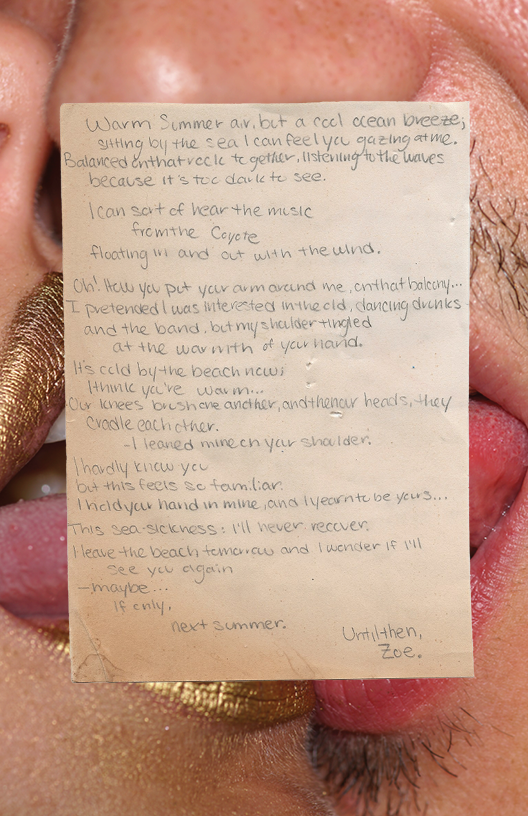 Warm Summer air, but a cool ocean breeze;
sitting by the sea I can feel you gazing at me.
Balanced on that rock together, listening to the waves
because it's too dark to see.
I can sort of hear the music
from the Coyote
floating in and out with the wind.
Oh! How you put your arm around me, on that balcony...
I pretended I was interested in the old, dancing drunks
and the band, but my shoulder tingled
at the warmth of your hand.
It's cold by the beach now;
I think you're warm...
Our knees brush one another, and then our heads, they
cradle each other.
-I leaned mine on your shoulder.
I hardly know you
but this feels so familiar.
I hold your hand in mine, and I yearn to be yours...
This sea-sickness: I'll never recover.
I leave the beach tomorrow and I wonder if I'll
see you again
-maybe...
If only,
next summer.
Until then,
Zoe.